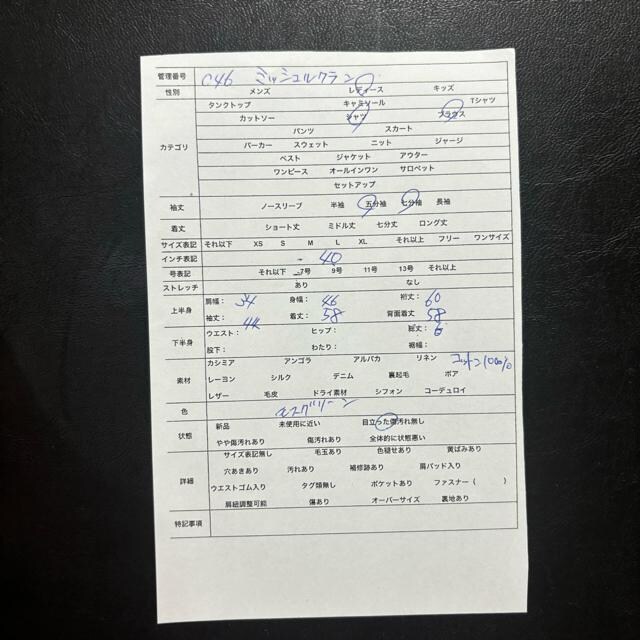 管理番号 C46 ミッシェルクラン
性別 メンズ レディース キッズ
カテゴリ
タンクトップ キャミソール Tシャツ
カットソー シャツ ブラウス
パンツ スカート
パーカー スウェット ニット ジャージ
ベスト ジャケット アウター
ワンピース オールインワン サロペット
セットアップ
袖丈 ノースリーブ 半袖 五分袖 七分袖 長袖
着丈 ショート丈 ミドル丈 七分丈 ロング丈
サイズ表記 それ以下 XS S M L XL それ以上 フリー ワンサイズ
インチ表記 40
号表記 それ以下 7号 9号 11号 13号 それ以上
ストレッチ あり なし
上半身
肩幅： 34 身幅： 46 裄丈： 60
袖丈： 44 着丈： 58 背面着丈： 58
下半身
ウエスト： ヒップ： 総丈：
股下： わたり： 裾幅：
素材
カシミア アンゴラ アルパカ リネン コットン100%
レーヨン シルク デニム 裏起毛 ボア
レザー 毛皮 ドライ素材 シフォン コーデュロイ
色 モスグリーン
状態
新品 未使用に近い 目立った傷汚れ無し
やや傷汚れあり 傷汚れあり 全体的に状態悪い
詳細
サイズ表記無し 毛玉あり 色褪せあり 黄ばみあり
穴あきあり 汚れあり 補修跡あり 肩パッド入り
ウエストゴム入り タグ類無し ポケットあり ファスナー（ ）
肩紐調整可能 傷あり オーバーサイズ 裏地あり
特記事項